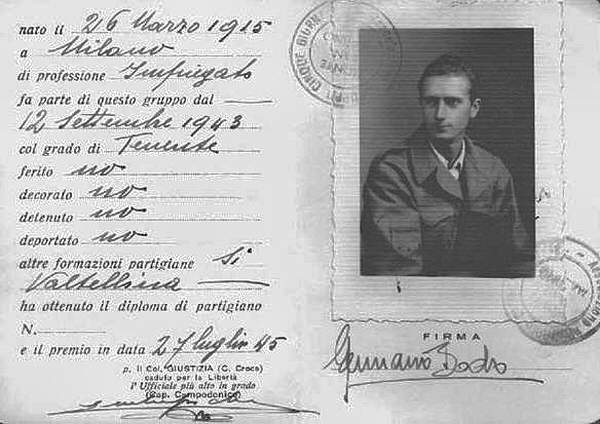 nato il 26 Marzo 1915
a Milano
di professione Impiegato
fa parte di questo gruppo dal
12 Settembre 1943
col grado di Tenente
ferito no
decorato no
detenuto no
deportato no
altre formazioni partigiane Si
Valtellina
ha ottenuto il diploma di partigiano
N.
e il premio in data 27 luglio 45
p. il Col. GIUSTIZIA (C. Croce)
caduto per la Libertà
l'Ufficiale più alto in grado
(Cap. Campodonico)
CINQUE GIORN
FIRMA
Germano Bodo